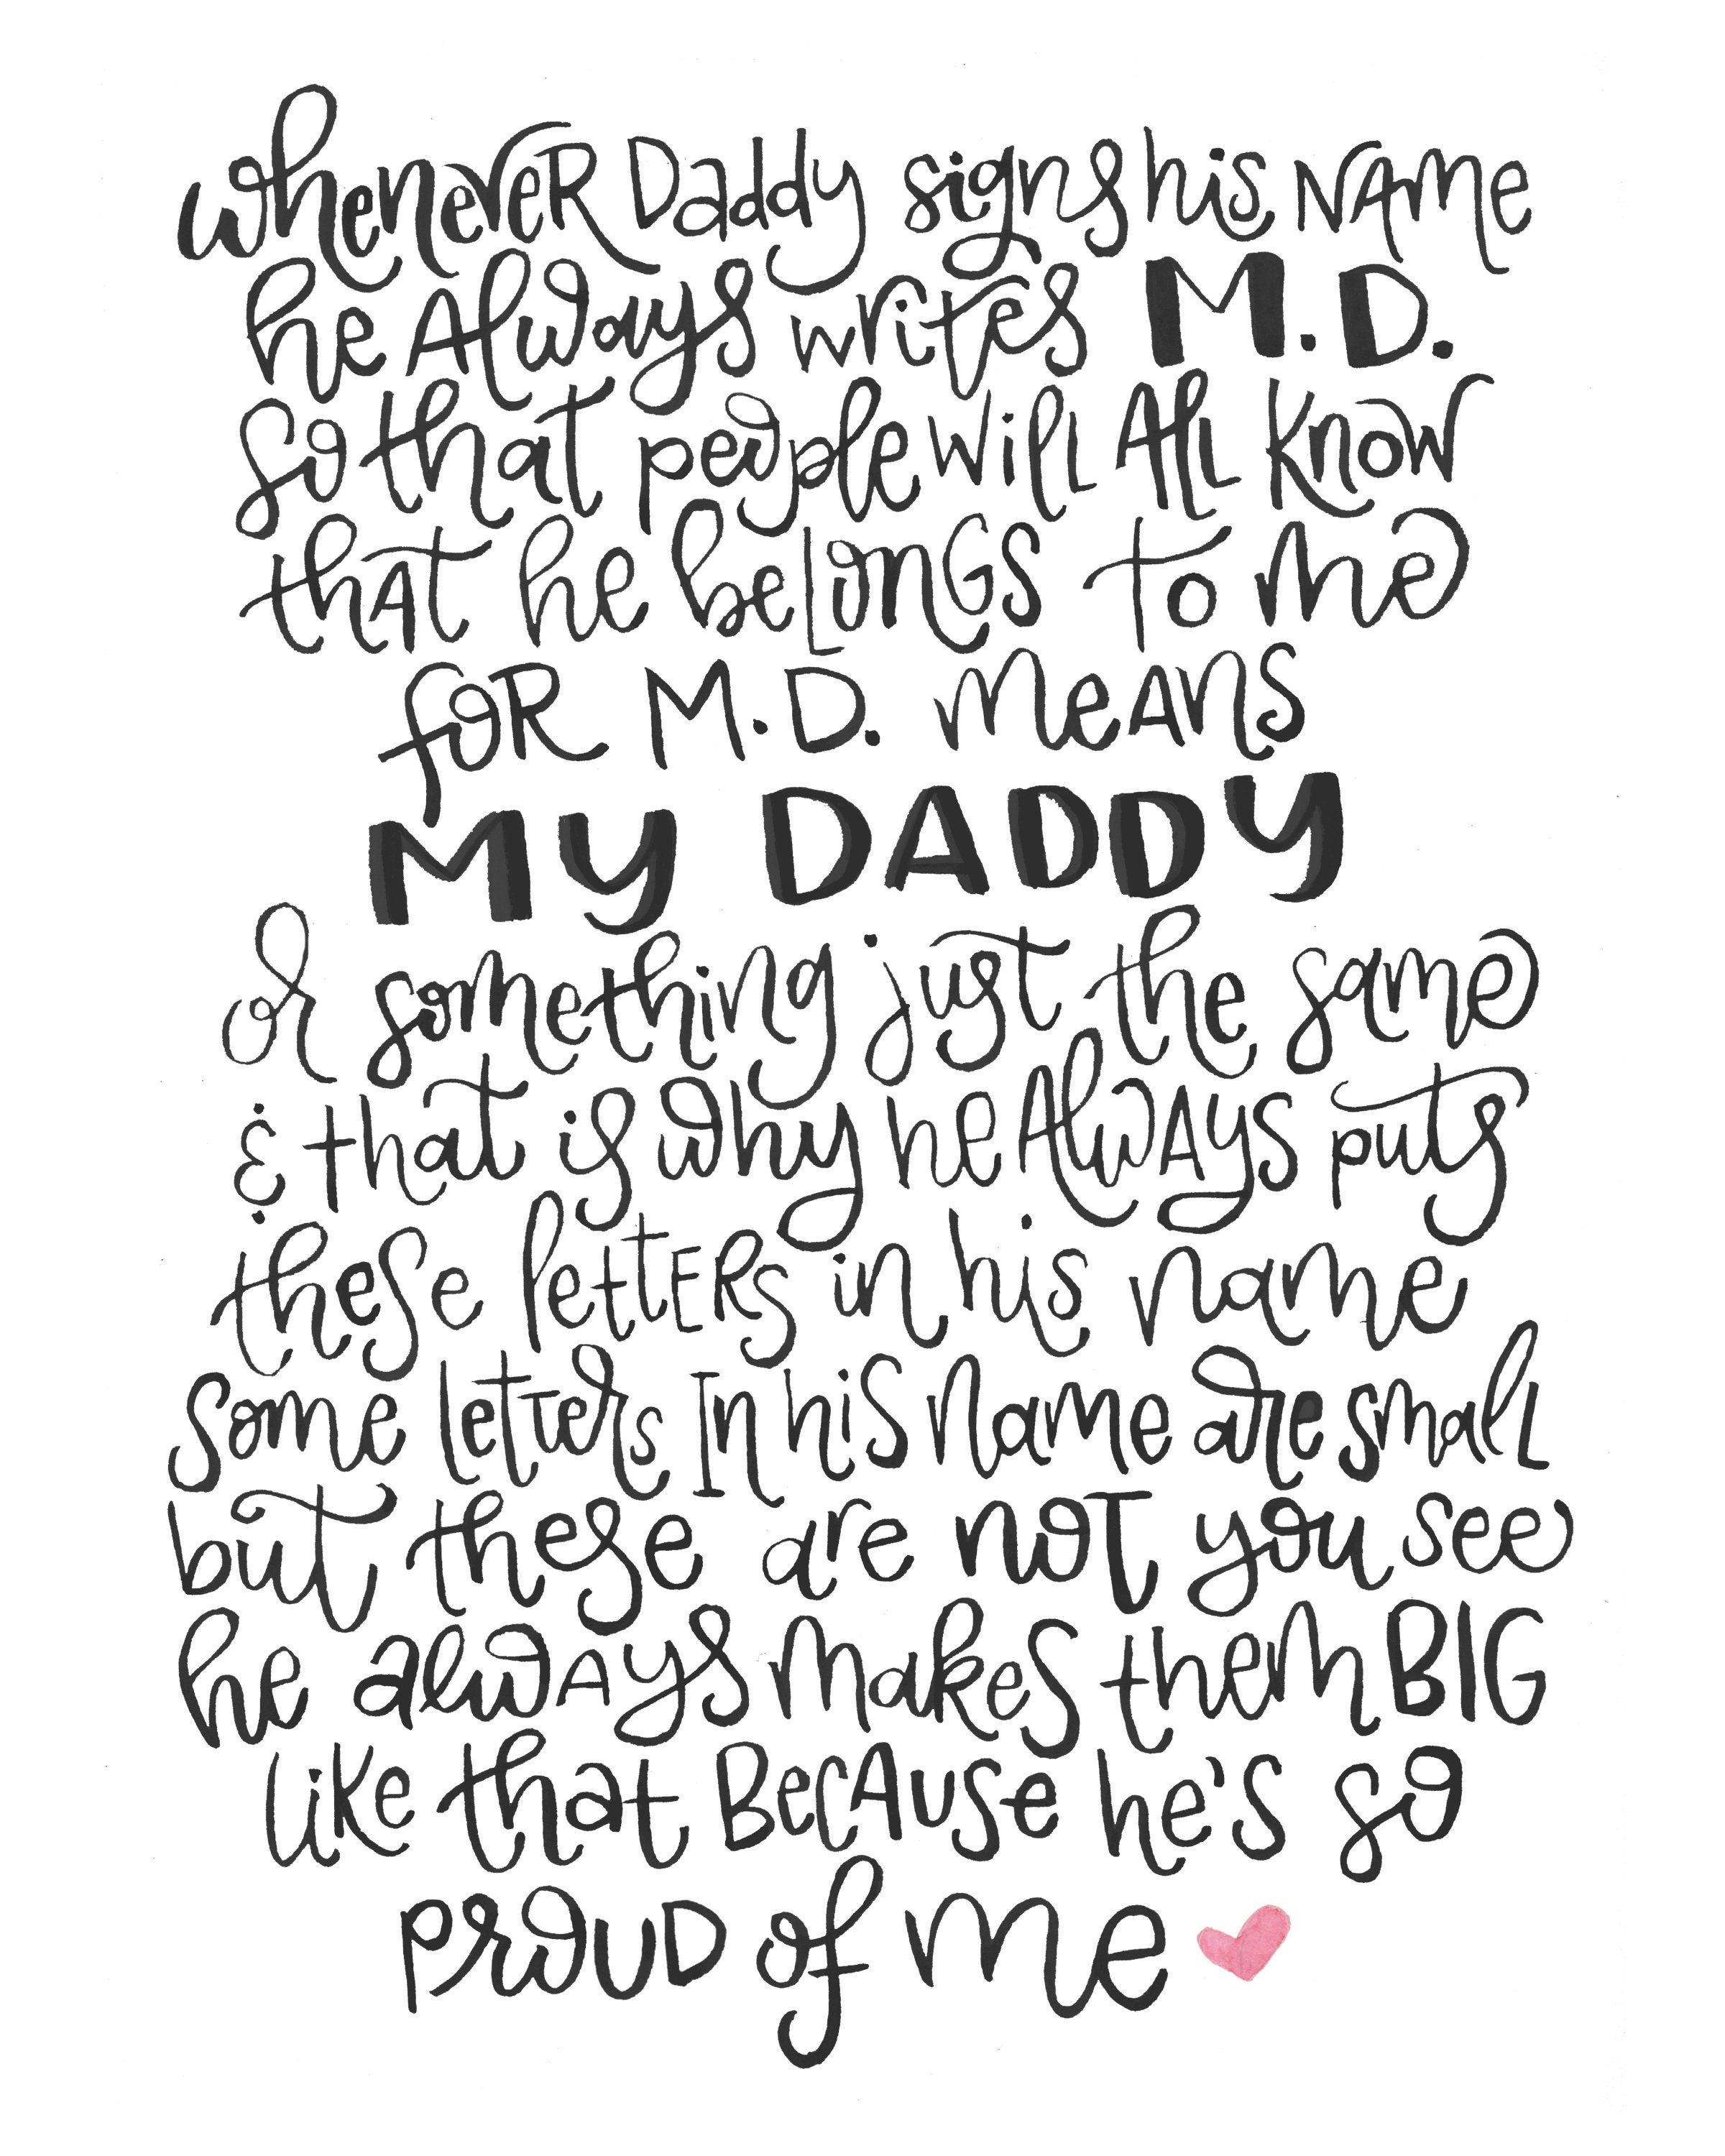 whenever Daddy signs his NAme
he Always writes M.D.
so that people will All know
thAT he beLonGS to me
foR M.D. meANS
MY DADDY
or something just the same
& that is why he AlwAys puts
these lettERs in his name
some letters In his name are smalL
but these are noT you see
he alwAys makes them BIG
like that BecAuse he's so
prouD of me